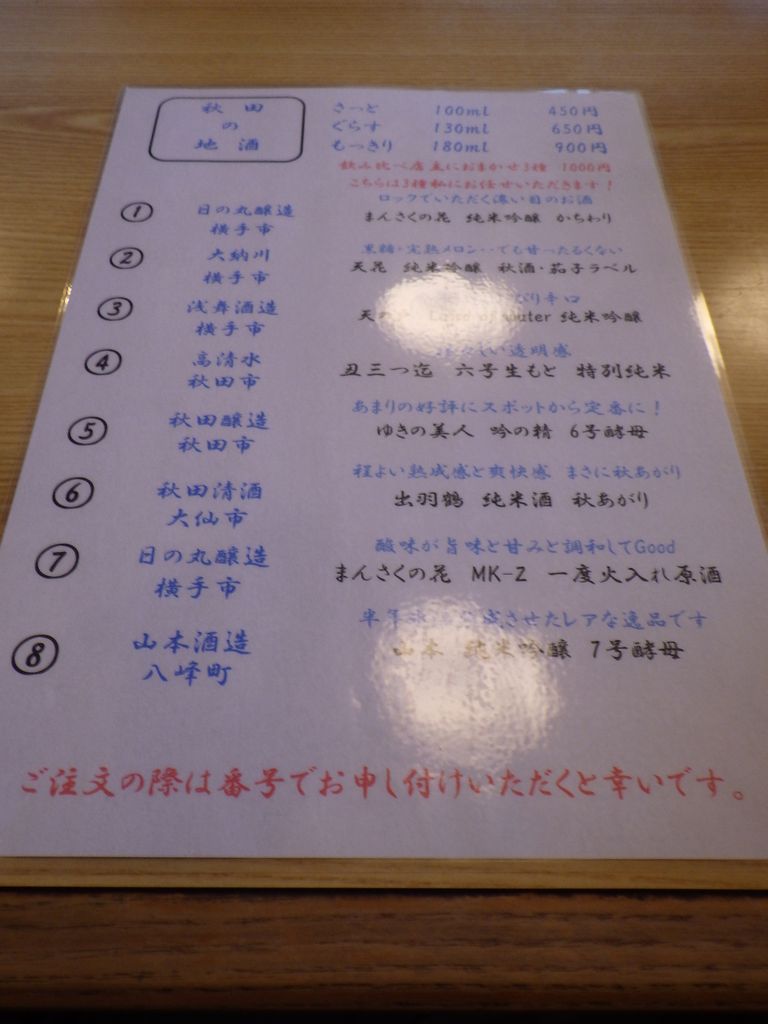 秋田
の
地酒
さっと 100ml 450円
ぐらす 130ml 650円
もっきり 180ml 900円
飲み比べ店主におまかせ3種 1000円
こちらは3種私にお任せいただきます!
① 日の丸醸造
横手市
ロックでいただく濃い目のお酒
まんさくの花 純米吟醸 かちわり
② 大納川
横手市
黒糖・完熟メロン・・でも甘ったるくない
天花 純米吟醸 秋酒・茄子ラベル
③ 浅舞酒造
横手市
り辛口
天の water 純米吟醸
④ 高清水
秋田市
透明感
丑三つ迄 六号生もと 特別純米
⑤ 秋田醸造
秋田市
あまりの好評にスポットから定番に!
ゆきの美人 吟の精 6号酵母
⑥ 秋田清酒
大仙市
程よい熟成感と爽快感 まさに秋あがり
出羽鶴 純米酒 秋あがり
⑦ 日の丸醸造
横手市
酸味が旨味と甘みと調和してGood
まんさくの花 MK-Z 一度火入れ原酒
⑧ 山本酒造
八峰町
半年 成させたレアな逸品です
山本 純米吟醸 7号酵母
ご注文の際は番号でお申し付けいただくと幸いです。